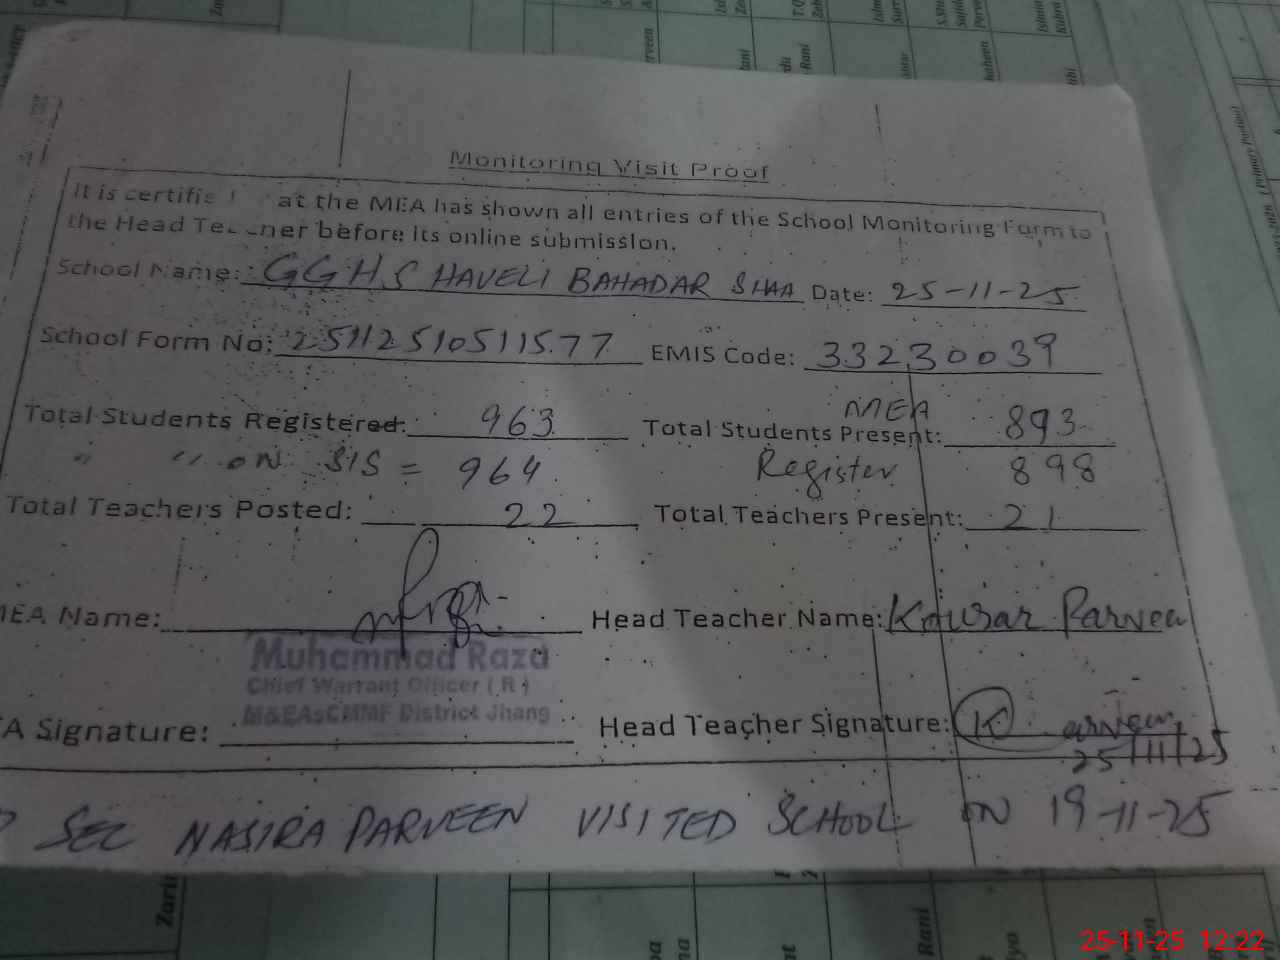 Monitoring Visit Proof
It is certifie at the MEA has shown all entries of the School Monitoring Form to
the Head Teacner before its online submission.
School Name: GGHS HAVELI BAHADAR SHAA Date: 25-11-25
School Form No: 25112510511577 EMIS Code: 33230039
MEA
Total Students Registered: 963 Total Students Present: 893
" " ON SIS = 964 Register 898
Total Teachers Posted: 22 Total Teachers Present: 21
MEA Name: Head Teacher Name: Kowsar Parveen
Muhammad Raza
Chief Warrant Officer (R)
M&EAsCMMF District Jhang
A Signature: Head Teacher Signature: K arveen
25/11/25
SEC NASIRA PARVEEN VISITED SCHOOL ON 19-11-25
25-11-25 12:22